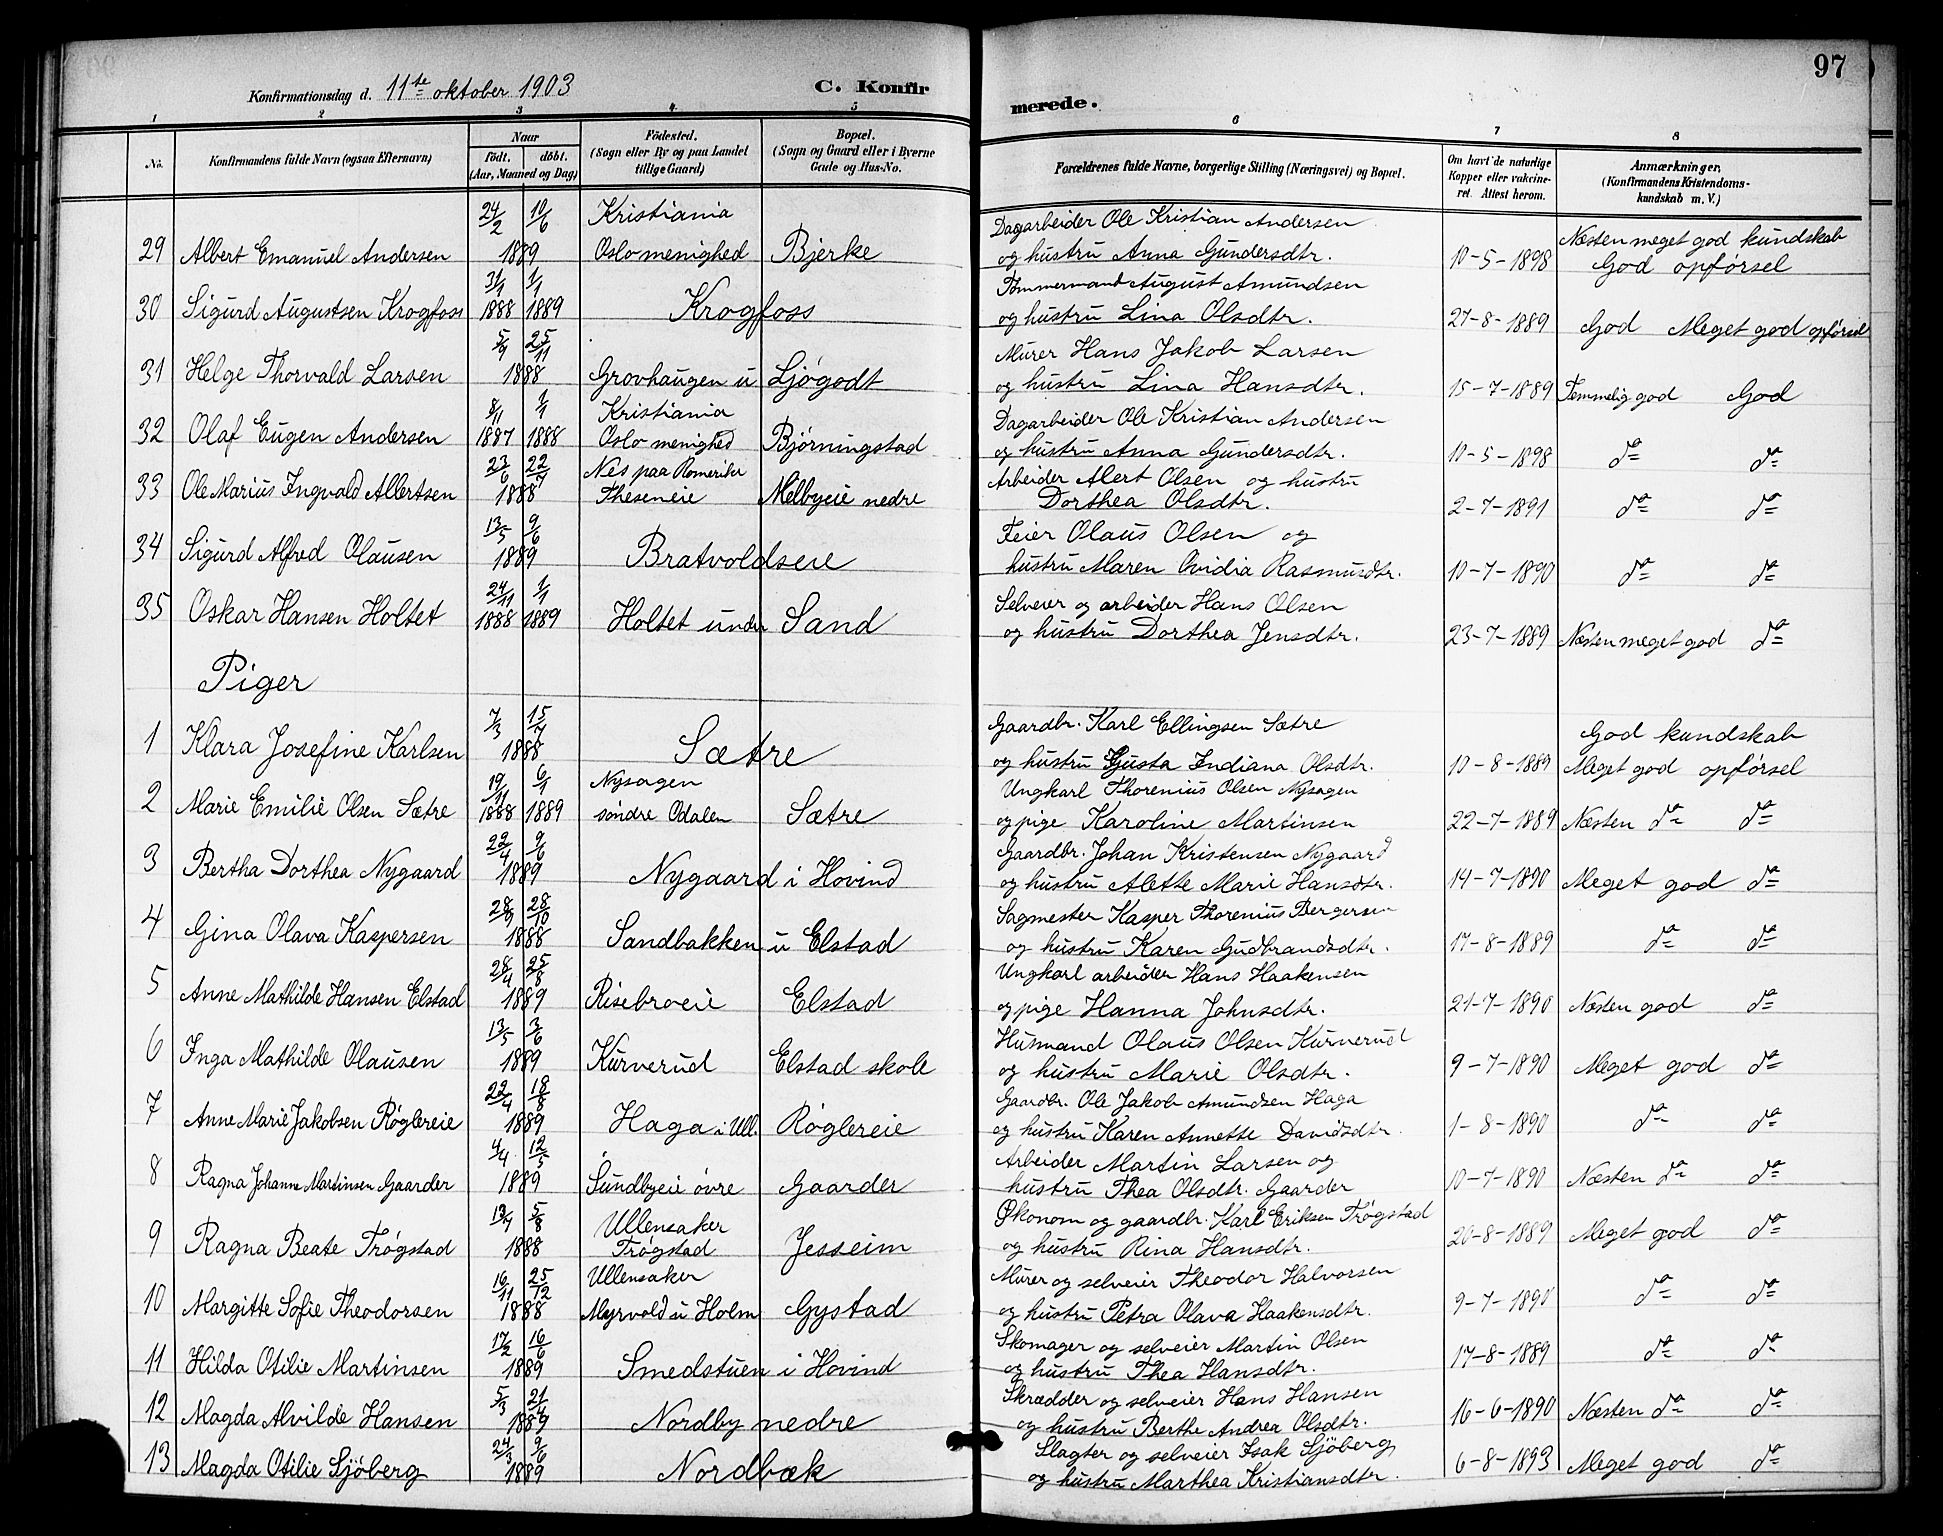 97
Konfirmationsdag d. 11te oktober 1903 C. Konfir
merede.
1 2 3 4 5 6 7 8
No. Konfirmandens fulde Navn (ogsaa Efternavn) Naar født. døbt. (Aar, Maaned og Dag) Fødested. (Sogn eller By og paa Landet tillige Gaard) Bopæl. (Sogn og Gaard eller i Byerne Gade og Hus-No. Forældrenes fulde Navne, borgerlige Stilling (Næringsvei) og Bopæl. Om havt de naturlige Kopper eller vakcineret. Attest herom. Anmærkninger, (Konfirmandens Kristendomskundskab m. V.)
24/2 10/6 Kristiania Dagarbeider Ole Kristian Andersen Næsten meget god kundskab
29 Albert Emanuel Andersen 1889 Oslo menighed Bjerke og hustru Anna Gundersdtr. 10-5-1898 God opførsel
31/1 1/1 Tømmermand August Amundsen
30 Sigurd Augustsen Krogfoss 1888 1889 Krogfoss og hustru Lina Olsdtr. 27-8-1889 God Meget god opførsel
5/9 25/11 Murer Hans Jakob Larsen
31 Helge Thorvald Larsen 1888 Grovhaugen u Ljøgodt og hustru Lina Hansdtr. 15-7-1889 Temmelig god God
8/11 1/1 Kristiania Dagarbeider Ole Kristian Andersen
32 Olaf Eugen Andersen 1887 1888 Oslo menighed Bjørningstad og hustru Anna Gundersdtr. 10-5-1898 da da
23/6 22/7 Nes paa Romerike Arbeider Alert Olsen og hustru
33 Ole Marius Ingvald Albertsen 1888 Theseneie Melbyeie nedre Dorthea Olsdtr. 2-7-1891 da da
13/5 9/6 Feier Olaus Olsen og
34 Sigurd Alfred Olausen 1889 Bratvoldseie hustru Maren Ovidia Rasmusdtr. 10-7-1890 da da
24/11 1/1 Selveier og arbeider Hans Olsen
35 Oskar Hansen Holtet 1888 1889 Holtet under Sand og hustru Dorthea Jensdtr. 23-7-1889 Næsten meget god da
Piger
7/3 15/4 Gaardbr. Karl Ellingsen Sætre God kundskab
1 Klara Josefine Karlsen 1888 Sætre og hustru Gusta Indiana Olsdtr. 10-8-1889 Meget god opførsel
19/11 6/1 Nysagen Ungkarl Thorenius Olsen Nysagen
2 Marie Emilie Olsen Sætre 1888 1889 søndre Odalen Sætre og pige Karoline Martinsen 22-7-1889 Næsten da da
22/4 9/6 Gaardbr. Johan Kristensen Nygaard
3 Bertha Dorthea Nygaard 1889 Nygaard i Hovind og hustru Alette Marie Hansdtr. 14-7-1890 Meget god da
28/9 28/10 Sagmester Kasper Thorenius Bergersen
4 Gina Olava Kaspersen 1888 Sandbakken u Elstad og hustru Karen Gudbrandsdtr. 17-8-1889 da da
28/4 25/8 Ungkarl arbeider Hans Haakensen
5 Anne Mathilde Hansen Elstad 1889 Risebroeie Elstad og pige Hanna Johnsdtr. 21-7-1890 Næsten god da
13/5 3/6 Husmand Olaus Olsen Kurverud
6 Inga Mathilde Olausen 1889 Kurverud Elstad skole og hustru Marie Olsdtr. 9-7-1890 Meget god da
22/4 18/8 Gaardbr. Ole Jakob Amundsen Haga
7 Anne Marie Jakobsen Røglereie 1889 Haga i Ull. Røglereie og hustru Karen Annette Davidsdtr. 1-8-1890 da da
4/4 12/5 Arbeider Martin Larsen og
8 Ragna Johanne Martinsen Gaarder 1889 Sundbyeie øvre Gaarder hustru Thea Olsdtr. Gaarder 10-7-1890 Næsten da da
13/7 5/8 Ullensaker Økonom og gaardbr. Karl Eriksen Trøgstad
9 Ragna Beate Trøgstad 1888 Trøgstad Jesseim og hustru Rina Hansdtr. 20-8-1889 Meget god da
16/11 25/12 Ullensaker Murer og selveier Theodor Halvorsen
10 Margitte Sofie Theodorsen 1888 Myrvold u Holm Gystad og hustru Petra Olava Haakensdtr. 9-7-1890 da da
17/2 16/6 Skomager og selveier Martin Olsen
11 Hilda Otilie Martinsen 1889 Smedstuen i Hovind og hustru Thea Hansdtr. 17-8-1889 da da
5/3 21/4 Skrædder og selveier Hans Hansen
12 Magda Alvilde Hansen 1889 Nordby nedre og hustru Berthe Andrea Olsdtr. 16-6-1890 Næsten da da
24/3 9/6 Slagter og selveier Isak Sjöberg
13 Magda Otilie Sjöberg 1889 Nordbæk og hustru Marthea Kristiansdtr. 6-8-1893 Meget god da